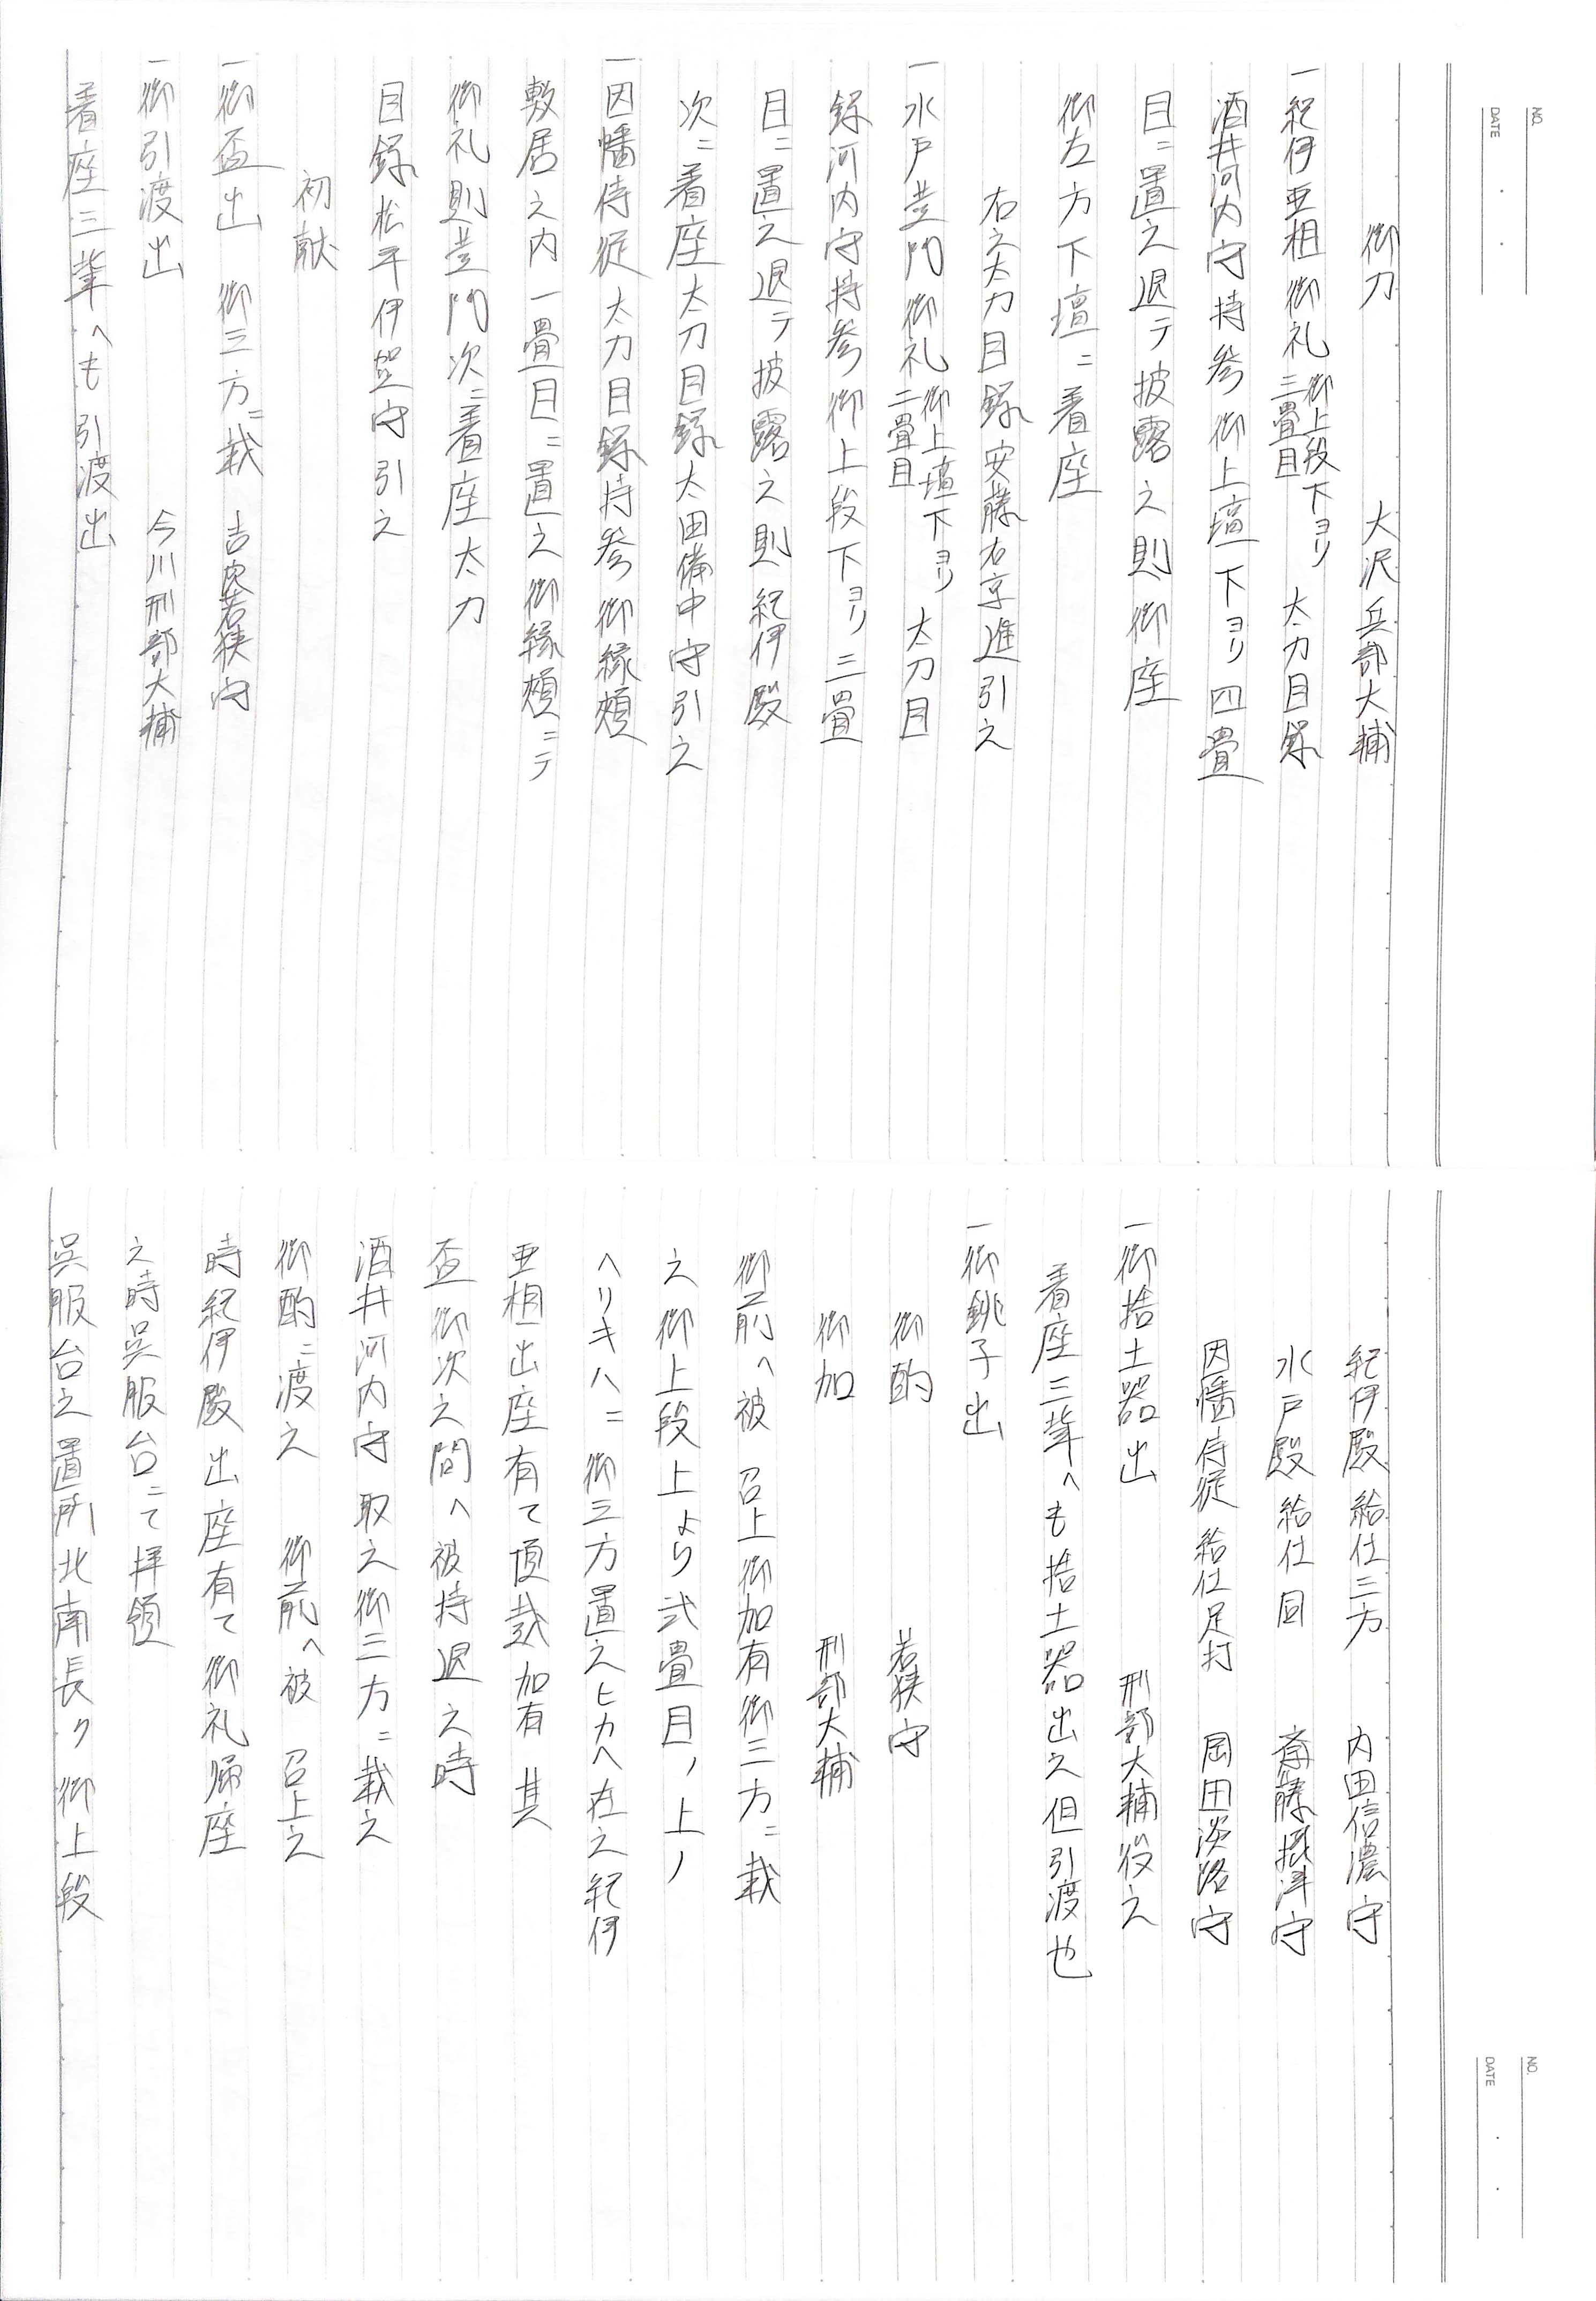 NO.
DATE
御刀　大沢兵部大輔
一紀伊亜相御礼 御上段下ヨリ三畳目 太刀目録
酒井河内守持参御上壇下ヨリ四畳
目ニ置之退テ披露之則御座
御左方下壇ニ着座
右之太刀目録安藤右京進引之
一水戸黄門御礼 御上壇下ヨリ二畳目 太刀目
録河内守持参御上段下ヨリ三畳
目ニ置之退テ披露之則紀伊殿
次ニ着座太刀目録太田備中守引之
一因幡侍従太刀目録持参御縁頬
敷居之内一畳目ニ置之御縁頬ニテ
御礼則黄門次ニ着座太刀
目録松平伊賀守引之
初献
一御盃出　御三方ニ載　吉良若狭守
一御引渡出　今川刑部大輔
着座三輩へも引渡出
NO.
DATE
紀伊殿給仕三方　内田信濃守
水戸殿給仕同　斎藤摂津守
因幡侍従給仕足打　岡田淡路守
一御捨土器出　刑部大輔役之
着座三輩へも捨土器出之但引渡也
一御銚子出
御酌　若狭守
御加　刑部大輔
御前へ被　召上御加有御三方ニ載
之御上段上より弐畳目ノ上ノ
ヘリキハニ御三方置之ヒカヘ在之紀伊
亜相出座有て頂戴加有其
盃御次之間へ被持退之時
酒井河内守取之御三方ニ載之
御酌ニ渡之　御前へ被　召上之
時紀伊殿出座有て御礼帰座
之時呉服台ニて拝領
呉服台之置所北南長ク御上段